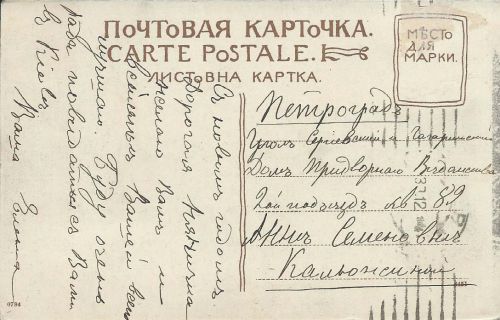 ПОЧТОВАЯ КАРТОЧКА.
CARTE POSTALE.
ЛИСТОВНА КАРТКА.
МѢСТО
ДЛЯ
МАРКИ.
Петроградъ
Уголъ Сергіевской и Гагаринской
Домъ Придворнаго Вѣдомства
2ой подъѣздъ кв 82
Аннѣ Семеновнѣ
Кальжинной
Съ новымъ годомъ
Дорогая
желаю Вамъ и
Вашей всего
лучшаго. Буду очень
рада повидаться съ Вами
Ваша Елена
12
0784